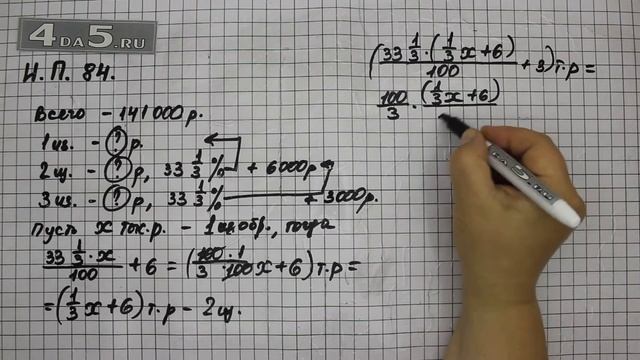 4DA5.RU
И.П. 84.
Всего – 141000 р.
1 из. – ? р.
2 ц. – ? р, 33 1/3 % + 6000р
3 из. – ? р, 33 1/3 % + 3000р.
Пусть x тыс.р. – 1 из.обр., тогда
(33 1/3 · x)/100 + 6 = (100·1/(3·100) x + 6) т.р =
= (1/3 x + 6) т.р – 2 ц.
((33 1/3 · (1/3 x + 6))/100 + 3) т.р =
100/3 · (1/3 x + 6)
4DA5.RU